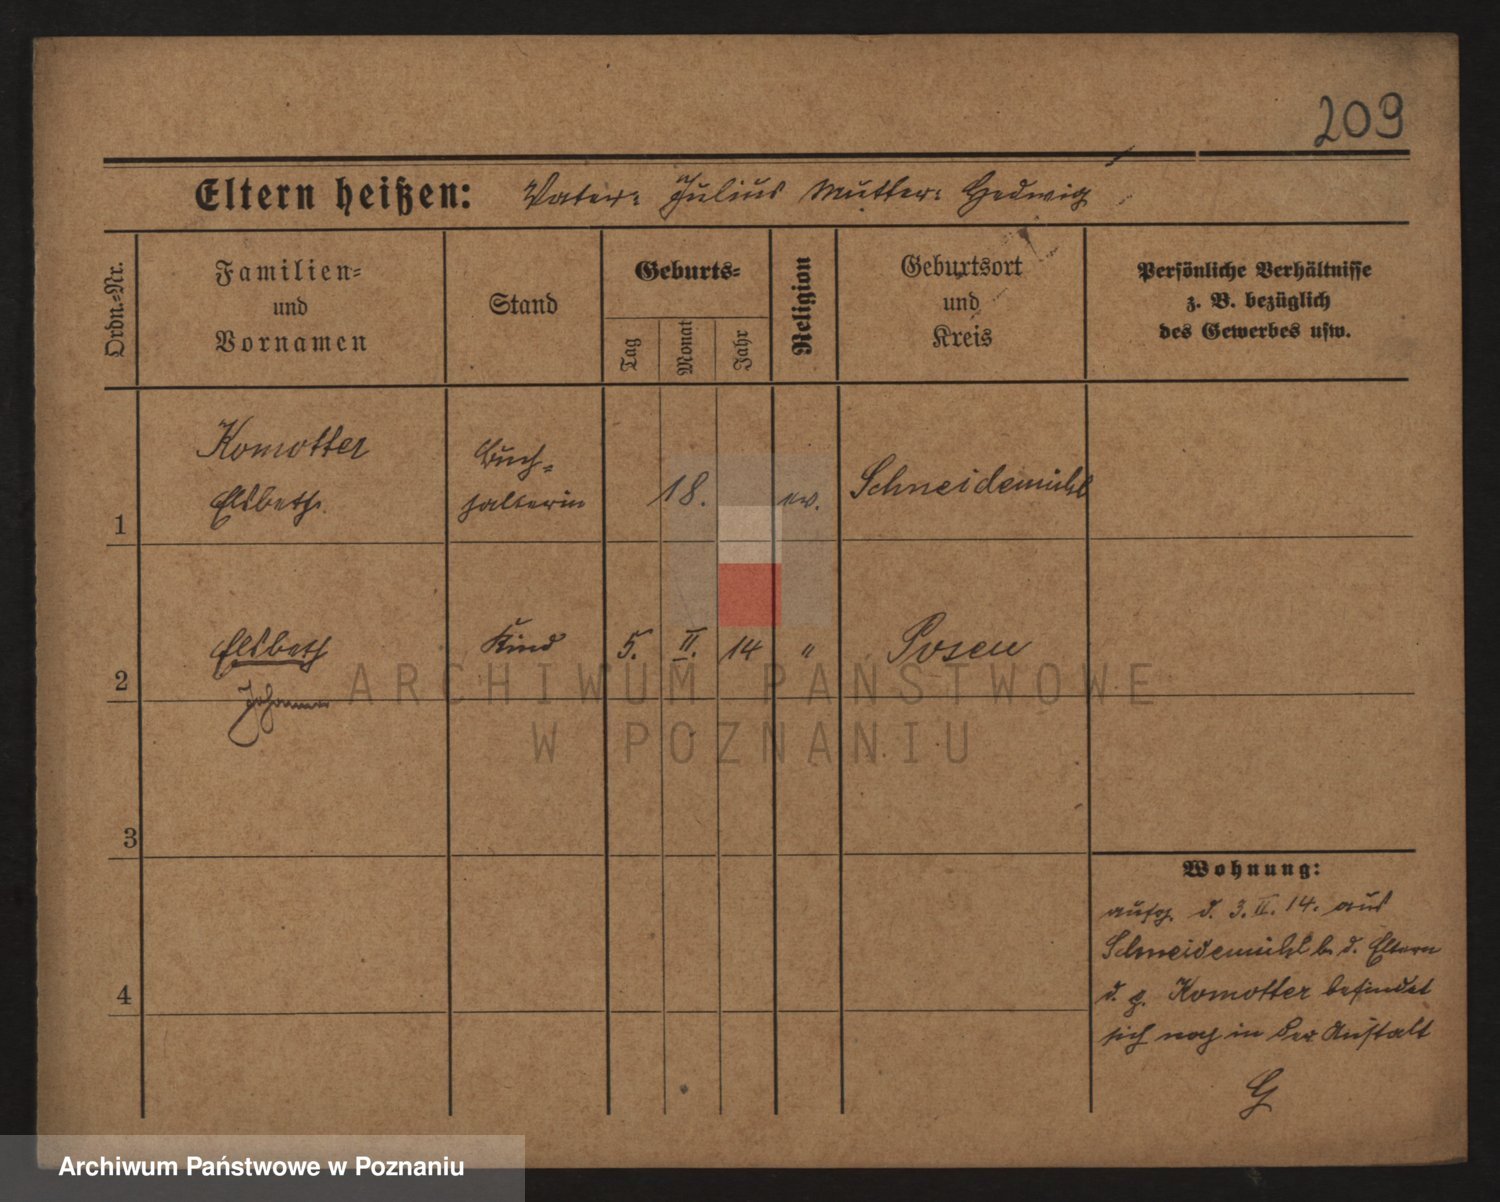 209
Eltern heißen: Vater: Julius Mutter: Hedwig
Ordn.=Nr.
Familien=
und
Vornamen
Stand
Geburts=
Tag
Monat
Jahr
Religion
Geburtsort
und
Kreis
Persönliche Verhältnisse
z. B. bezüglich
des Gewerbes usw.
1
Komotter
Elsbeth
Buch=
halterin
18.
ev.
Schneidemühl
2
Elsbeth
Johanna
Kind
5. II. 14
"
Posen
3
4
Wohnung:
d. 3. II. 14. aus
Schneidemühl b. d. Eltern
d. p. Komotter befindet
sich noch in der Anstalt
G
ARCHIWUM PAŃSTWOWE
W POZNANIU
Archiwum Państwowe w Poznaniu